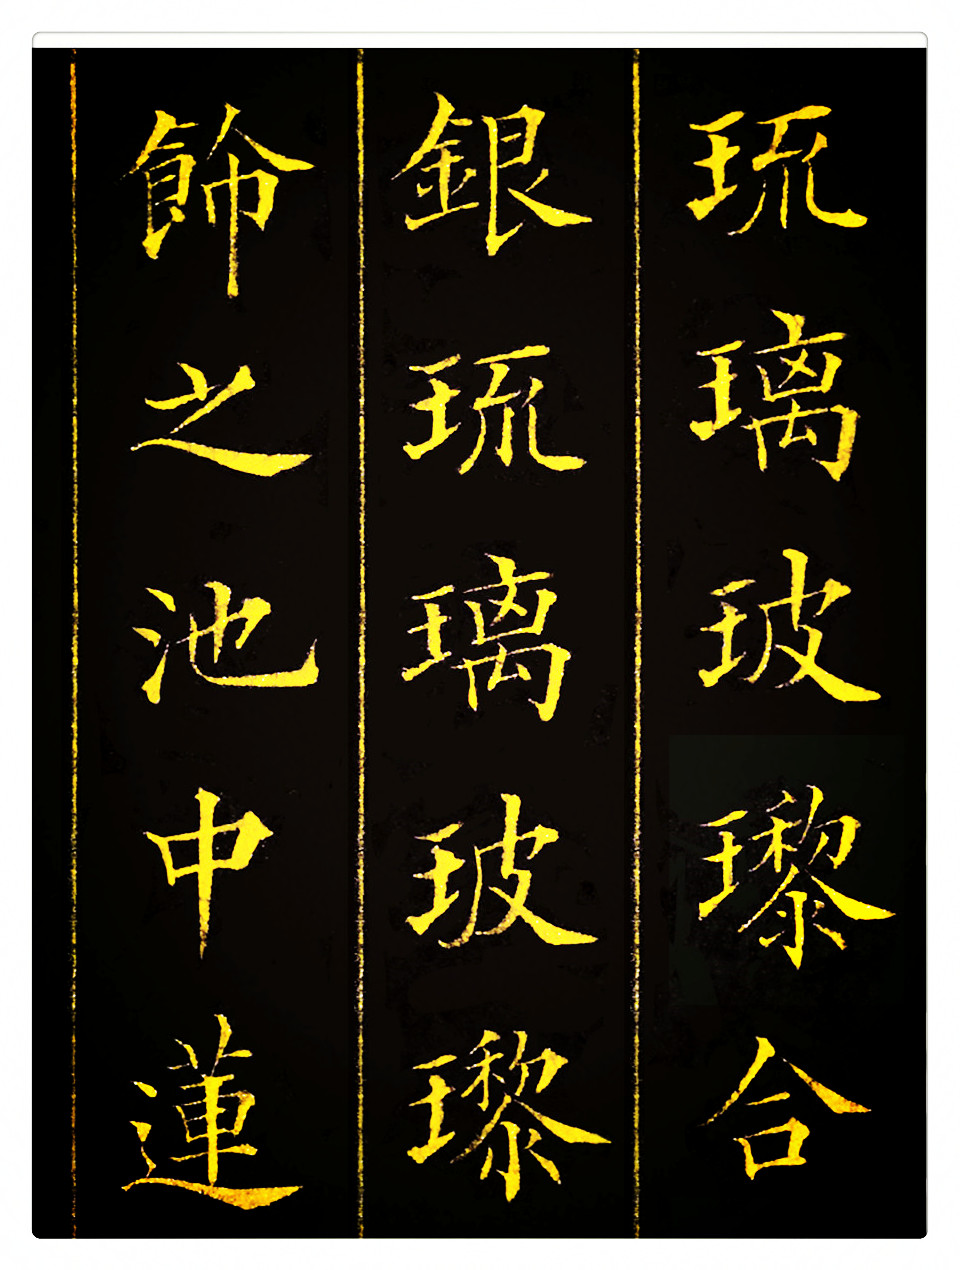 琉璃玻瓈合
銀琉璃玻瓈
飾之池中蓮